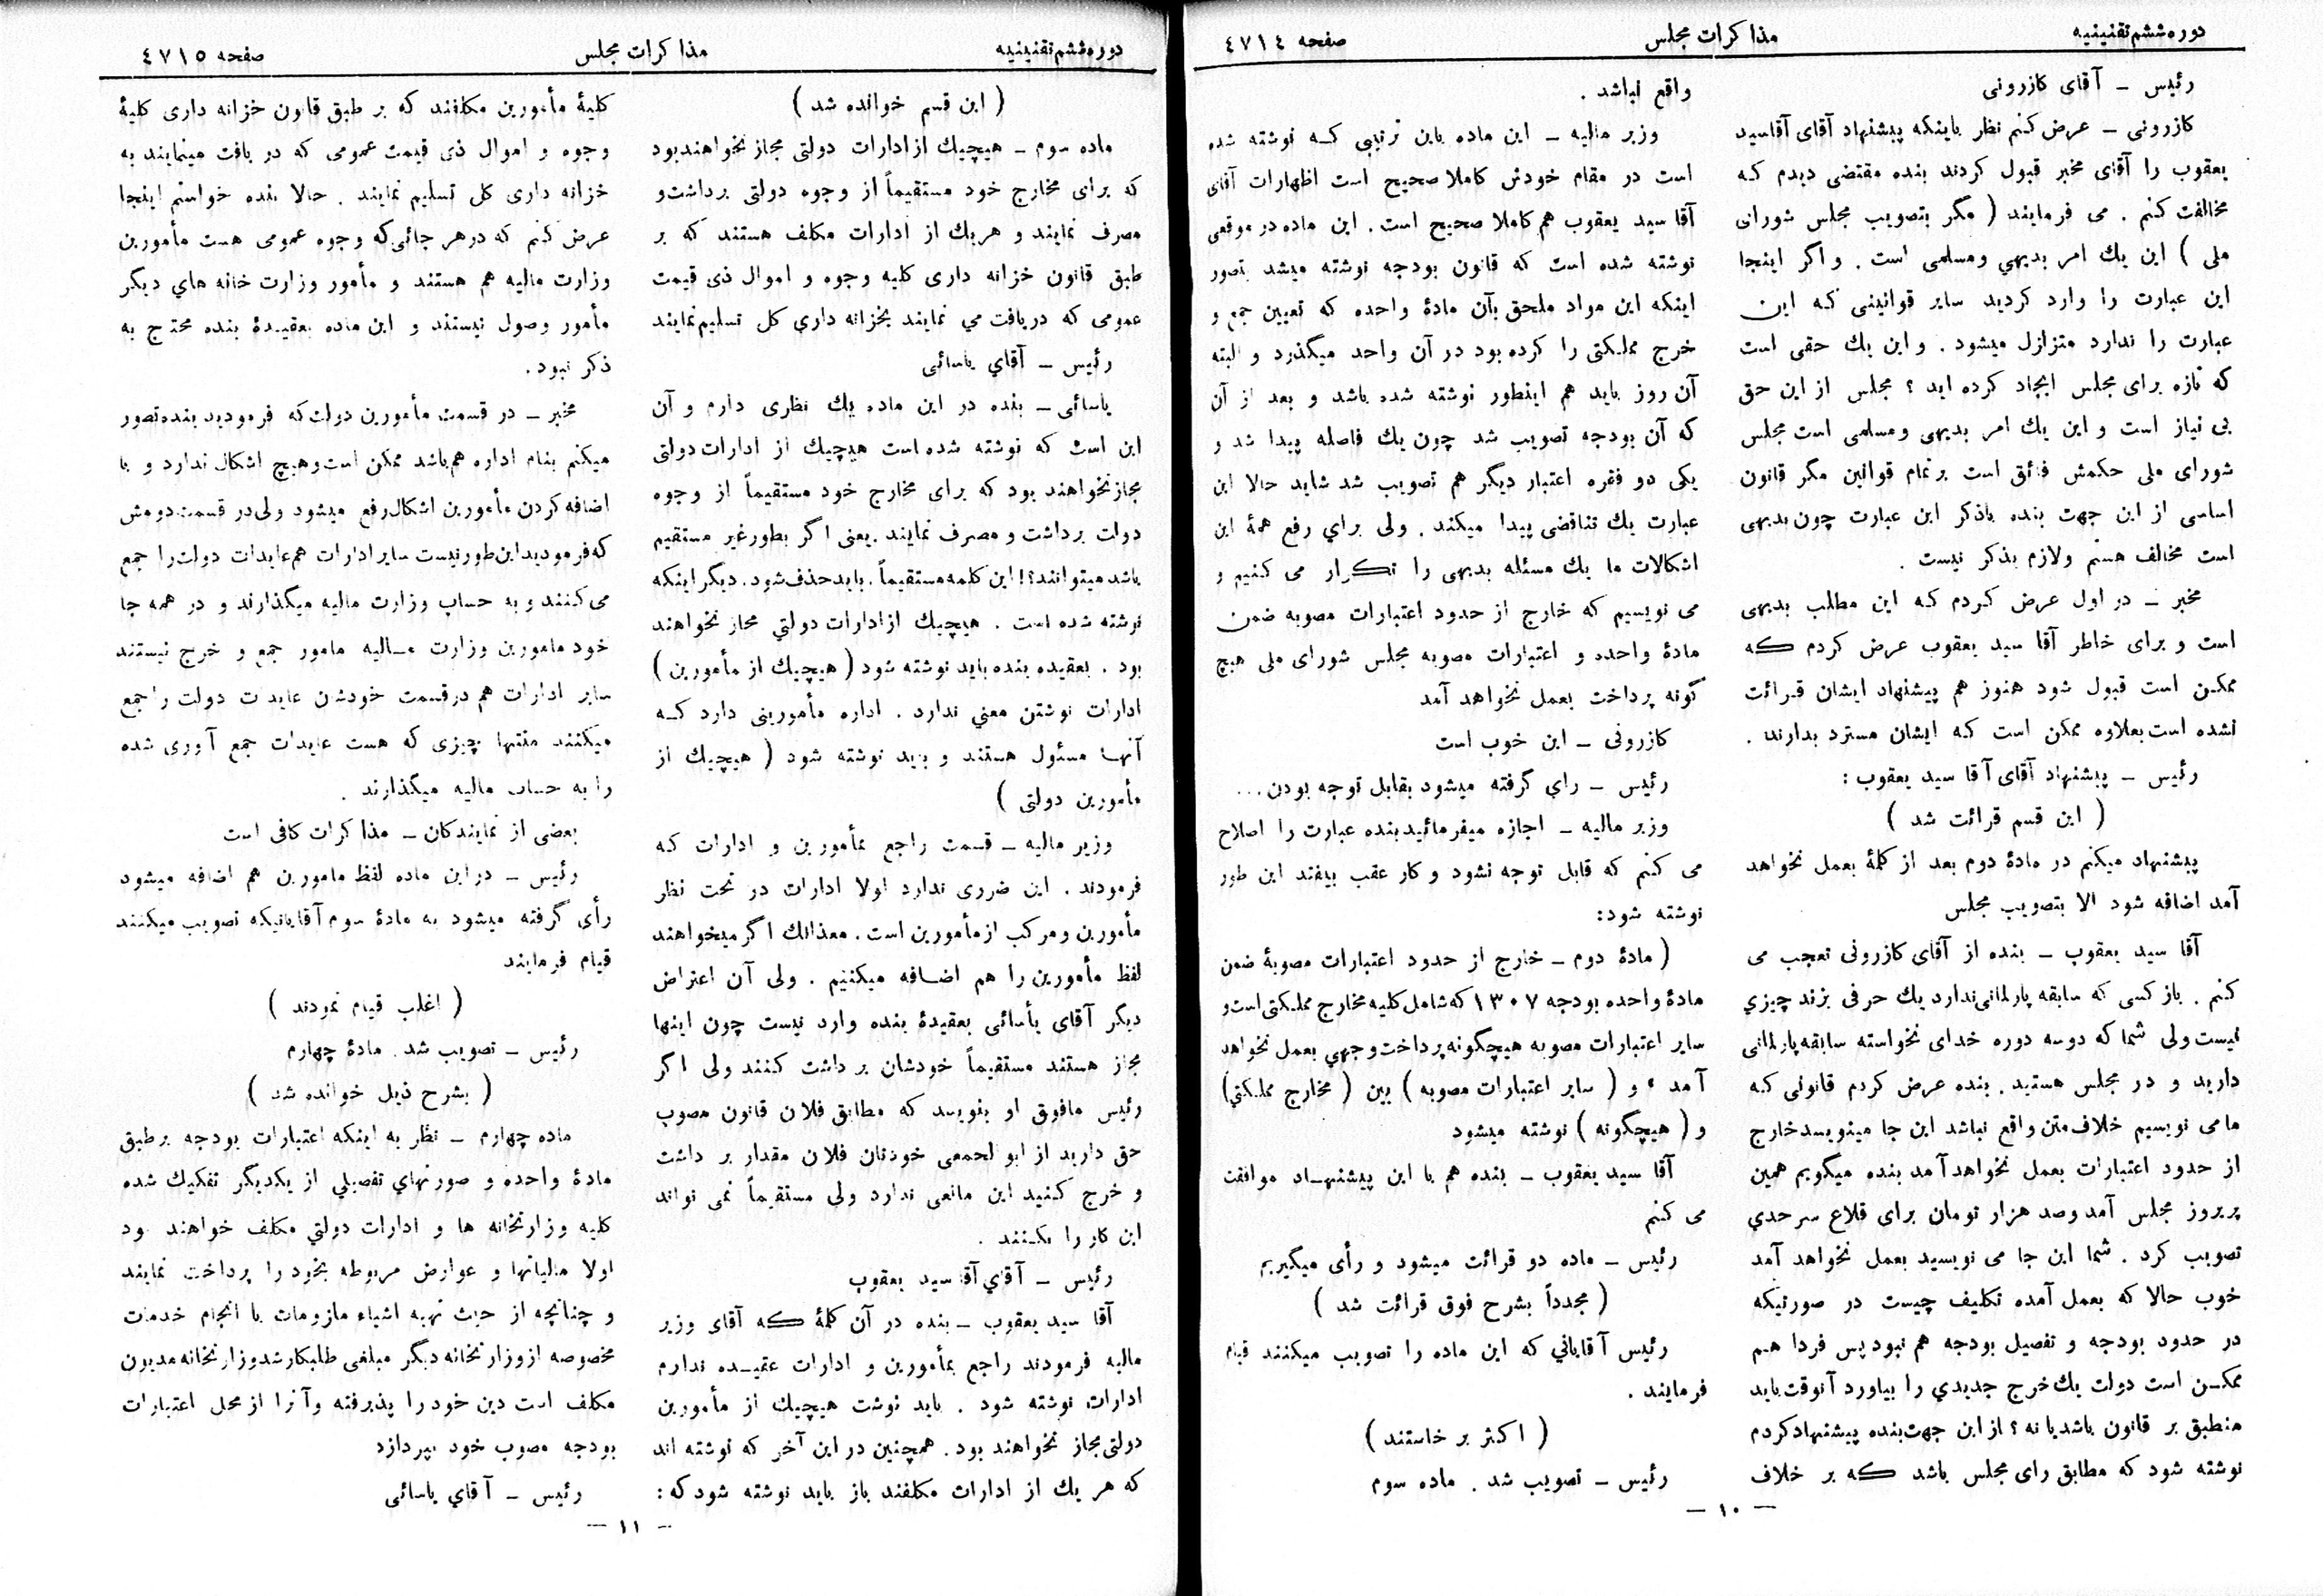 دوره ششم تقنینیه
مذاکرات مجلس
صفحه ٤٧١٤
رئیس – آقای کازرونی
کازرونی – عرض کنم نظر باینکه پیشنهاد آقای آقاسید
یعقوب را آقای مخبر قبول کردند بنده مقتضی دیدم که
مخالفت کنم . می فرمایند ( مگر بتصویب مجلس شورای
ملی ) این یك امر بدیهی ومسلمی است . و اگر اینجا
این عبارت را وارد کردید سایر قوانینی که این
عبارت را ندارد متزلزل میشود . و این یك حقی است
که تازه برای مجلس ایجاد کرده اید ؟ مجلس از این حق
بی نیاز است و این یك امر بدیهی ومسلمی است مجلس
شورای ملی حکمش فائق است بر تمام قوانین مگر قانون
اساسی از این جهت بنده باذکر این عبارت چون بدیهی
است مخالف هستم ولازم بذکر نیست .
مخبر – در اول عرض کردم که این مطلب بدیهی
است و برای خاطر آقا سید یعقوب عرض کردم که
ممکن است قبول شود هنوز هم پیشنهاد ایشان قرائت
نشده است بعلاوه ممکن است که ایشان مسترد بدارند .
رئیس – پیشنهاد آقای آقا سید یعقوب :
( این قسم قرائت شد )
پیشنهاد میکنم در مادۀ دوم بعد از کلمۀ بعمل نخواهد
آمد اضافه شود الا بتصویب مجلس
آقا سید یعقوب – بنده از آقای کازرونی تعجب می
کنم . باز کسی که سابقه پارلمانی ندارد یك حرفی بزند چیزی
نیست ولی شما که دوسه دوره خدای نخواسته سابقه پارلمانی
دارید و در مجلس هستید . بنده عرض کردم قانونی که
ما می نویسیم خلاف متن واقع نباشد این جا مینویسد خارج
از حدود اعتبارات بعمل نخواهد آمد بنده میگویم همین
پریروز مجلس آمد وصد هزار تومان برای قلاع سرحدی
تصویب کرد . شما این جا می نویسید بعمل نخواهد آمد
خوب حالا که بعمل آمده تکلیف چیست در صورتیکه
در حدود بودجه و تفصیل بودجه هم نبود پس فردا هم
ممکن است دولت یك خرج جدیدی را بیاورد آنوقت باید
منطبق بر قانون باشد یا نه ؟ از این جهت بنده پیشنهاد کردم
نوشته شود که مطابق رای مجلس باشد که بر خلاف
واقع نباشد .
وزیر مالیه – این ماده باین ترتیبی که نوشته شده
است در مقام خودش کاملا صحیح است اظهارات آقای
آقا سید یعقوب هم کاملا صحیح است . این ماده در موقعی
نوشته شده است که قانون بودجه نوشته میشد بتصور
اینکه این مواد ملحق بآن مادۀ واحده که تعیین جمع و
خرج مملکتی را کرده بود در آن واحد میگذرد و البته
آن روز باید هم اینطور نوشته شده باشد و بعد از آن
که آن بودجه تصویب شد چون یك فاصله پیدا شد و
یکی دو فقره اعتبار دیگر هم تصویب شد شاید حالا این
عبارت یك تناقضی پیدا میکند . ولی برای رفع همۀ این
اشکالات ما یك مسئله بدیهی را تکرار می کنیم و
می نویسیم که خارج از حدود اعتبارات مصوبه ضمن
مادۀ واحده و اعتبارات مصوبه مجلس شورای ملی هیچ
گونه پرداخت بعمل نخواهد آمد
کازرونی – این خوب است
رئیس – رای گرفته میشود بقابل توجه بودن ...
وزیر مالیه – اجازه میفرمائید بنده عبارت را اصلاح
می کنم که قابل توجه نشود و کار عقب بیفتد این طور
نوشته شود:
( مادۀ دوم – خارج از حدود اعتبارات مصوبۀ ضمن
مادۀ واحده بودجه ١٣٠٧ که شامل کلیه مخارج مملکتی است و
سایر اعتبارات مصوبه هیچگونه پرداخت وجهی بعمل نخواهد
آمد ، و ( سایر اعتبارات مصوبه ) بین ( مخارج مملکتی )
و ( هیچگونه ) نوشته میشود
آقا سید یعقوب – بنده هم با این پیشنهاد موافقت
می کنم
رئیس – ماده دو قرائت میشود و رأی میگیریم
( مجدداً بشرح فوق قرائت شد )
رئیس آقایانی که این ماده را تصویب میکنند قیام
فرمایند .
( اکثر بر خاستند )
رئیس – تصویب شد . ماده سوم
– ١٠ –
دوره ششم تقنینیه
مذاکرات مجلس
صفحه ٤٧١٥
( این قسم خوانده شد )
ماده سوم – هیچیك از ادارات دولتی مجاز نخواهند بود
که برای مخارج خود مستقیماً از وجوه دولتی برداشت و
مصرف نمایند و هریك از ادارات مکلف هستند که بر
طبق قانون خزانه داری کلیه وجوه و اموال ذی قیمت
عمومی که دریافت می نمایند بخزانه داری کل تسلیم نمایند
رئیس – آقای یاسائی
یاسائی – بنده در این ماده یك نظری دارم و آن
این است که نوشته شده است هیچیك از ادارات دولتی
مجاز نخواهند بود که برای مخارج خود مستقیماً از وجوه
دولت برداشت و مصرف نمایند . یعنی اگر بطور غیر مستقیم
باشد میتوانند؟! این کلمه مستقیماً . باید حذف شود . دیگر اینکه
نوشته شده است . هیچیك از ادارات دولتی مجاز نخواهند
بود . بعقیده بنده باید نوشته شود ( هیچیك از مأمورین )
ادارات نوشتن معنی ندارد . اداره مأمورینی دارد که
آنها مسئول هستند و باید نوشته شود ( هیچیك از
مأمورین دولتی )
وزیر مالیه – قسمت راجع بمأمورین و ادارات که
فرمودند . این ضرری ندارد اولا ادارات در تحت نظر
مأمورین و مرکب از مأمورین است . معذالك اگر میخواهند
لفظ مأمورین را هم اضافه میکنیم . ولی آن اعتراض
دیگر آقای یاسائی بعقیدۀ بنده وارد نیست چون اینها
مجاز هستند مستقیماً خودشان برداشت کنند ولی اگر
رئیس مافوق او بنویسد که مطابق فلان قانون مصوب
حق دارید از ابوالجمعی خودتان فلان مقدار بر داشت
و خرج کنید این مانعی ندارد ولی مستقیماً نمی تواند
این کار را بکنند .
رئیس – آقای آقا سید یعقوب
آقا سید یعقوب – بنده در آن کلمۀ که آقای وزیر
مالیه فرمودند راجع بمأمورین و ادارات عقیده ندارم
ادارات نوشته شود . باید نوشت هیچیك از مأمورین
دولتی مجاز نخواهند بود . همچنین در این آخر که نوشته اند
که هر یك از ادارات مکلفند باز باید نوشته شود که :
کلیۀ مأمورین مکلفند که بر طبق قانون خزانه داری کلیۀ
وجوه و اموال ذی قیمت عمومی که در یافت مینمایند به
خزانه داری کل تسلیم نمایند . حالا بنده خواستم اینجا
عرض کنم که در هر جائی که وجوه عمومی هست مأمورین
وزارت مالیه هم هستند و مأمور وزارت خانه های دیگر
مأمور وصول نیستند و این ماده بعقیدۀ بنده محتاج به
ذکر نبود .
مخبر – در قسمت مأمورین دولت که فرمودید بنده تصور
میکنم بنام اداره هم باشد ممکن است وهیچ اشکال ندارد و با
اضافه کردن مأمورین اشکال رفع میشود ولی در قسمت دومش
که فرمودید این طور نیست سایر ادارات هم عایدات دولت را جمع
می کنند و به حساب وزارت مالیه میگذارند و در همه جا
خود مامورین وزارت مالیه مامور جمع و خرج نیستند
سایر ادارات هم در قسمت خودشان عایدات دولت را جمع
میکنند منتها چیزی که هست عایدات جمع آوری شده
را به حساب مالیه میگذارند .
بعضی از نمایندکان – مذاکرات کافی است
رئیس – در این ماده لفظ مامورین هم اضافه میشود
رأی گرفته میشود به مادۀ سوم آقایانیکه تصویب میکنند
قیام فرمایند
( اغلب قیام نمودند )
رئیس – تصویب شد . مادۀ چهارم
( بشرح ذیل خوانده شد )
ماده چهارم – نظر به اینکه اعتبارات بودجه بر طبق
مادۀ واحده و صورتهای تفصیلی از یکدیگر تفکیك شده
کلیه وزارتخانه ها و ادارات دولتی مکلف خواهند بود
اولا مالیاتها و عوارض مربوطه بخود را پرداخت نمایند
و چنانچه از حیث تهیه اشیاء ملزومات یا انجام خدمات
مخصوصه از وزارتخانه دیگر مبلغی طلبکار شد وزارتخانه مدیون
مکلف است دین خود را پذیرفته وآنرا از محل اعتبارات
بودجه مصوب خود بپردازد
رئیس – آقای یاسائی
– ١١ –